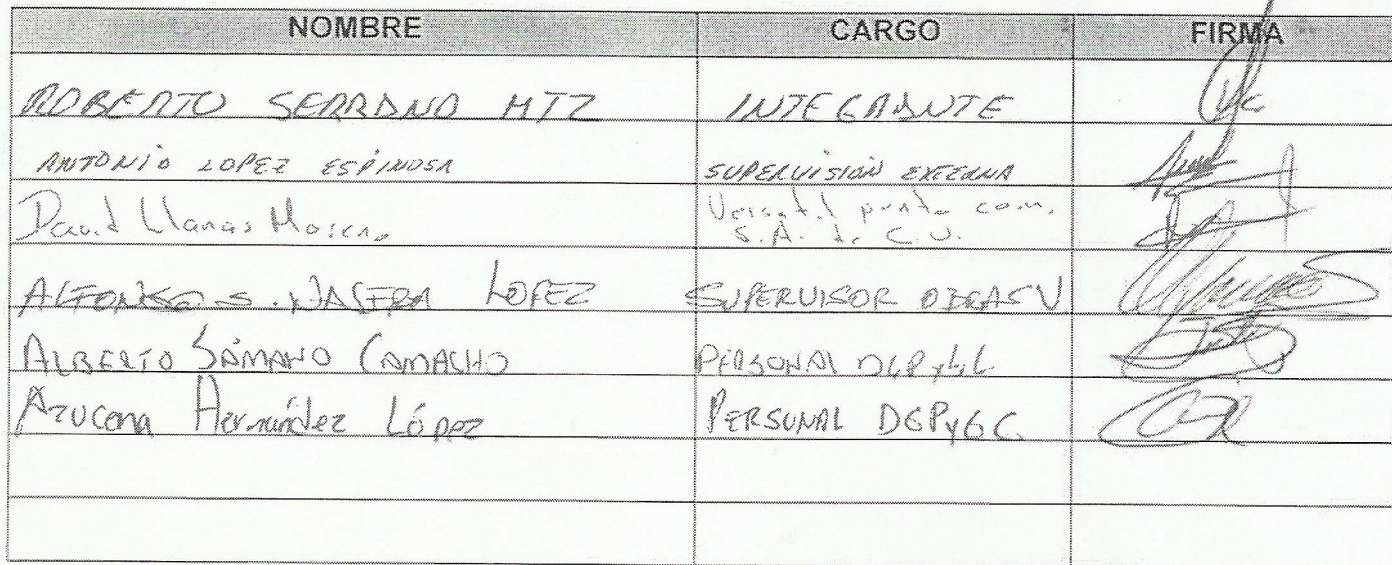 NOMBRE CARGO FIRMA
ROBERTO SERRANO MTZ INTEGRANTE
ANTONIO LOPEZ ESPINOSA SUPERVISIÓN EXTERNA
David Llanas Moreno Versatil punto com,
S.A. de C.V.
ALFONSO S. LOPEZ SUPERVISOR
ALBERTO SÁMANO CAMACHO PERSONAL DGPyGC
Azucena Hernández López PERSONAL DGPyGC